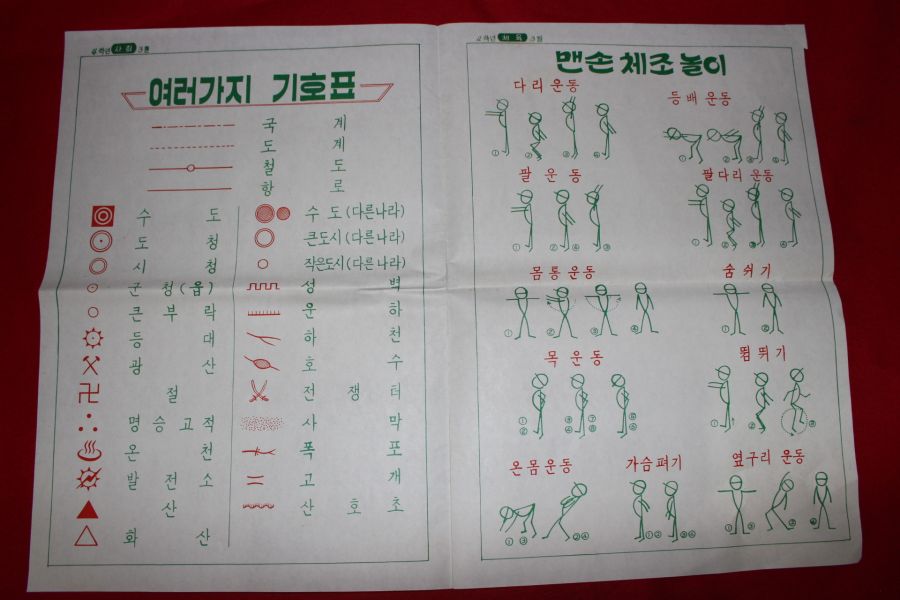 4 학년 사회 과용
여러가지 기호표
국 계
도 계
철 도
항 로
수 도
도 청
시 청
군 청(읍)
큰 부 락
등 대
광 산
절
명 승 고 적
온 천
발 전 소
산
화 산
수 도 (다른나라)
큰도시 (다른나라)
작은도시 (다른나라)
성 벽
운 하
하 천
호 수
전 쟁 터
사 막
폭 포
고 개
산 호 초
학년 체 육 과용
맨손 체조 놀이
다리 운동
① ② ③ ④
등 배 운동
① ② ③ ④
팔 운 동
① ② ④ ③
팔다리 운동
① ② ③ ④
몸 통 운동
① ② ③ ④
숨 쉬 기
① ②
목 운 동
뜀 뛰 기
온 몸 운동
① ③ ② ④
가슴 펴기
옆구리 운동